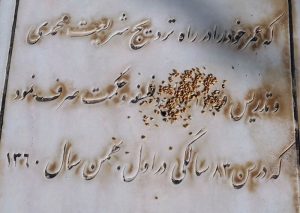 که عمر خود را در راه ترویج شریعت محمدی
و تدریس فلسفه و حکمت صرف نمود
که در سن ۸۳ سالگی در اول بهمن سال ۱۳۶۰